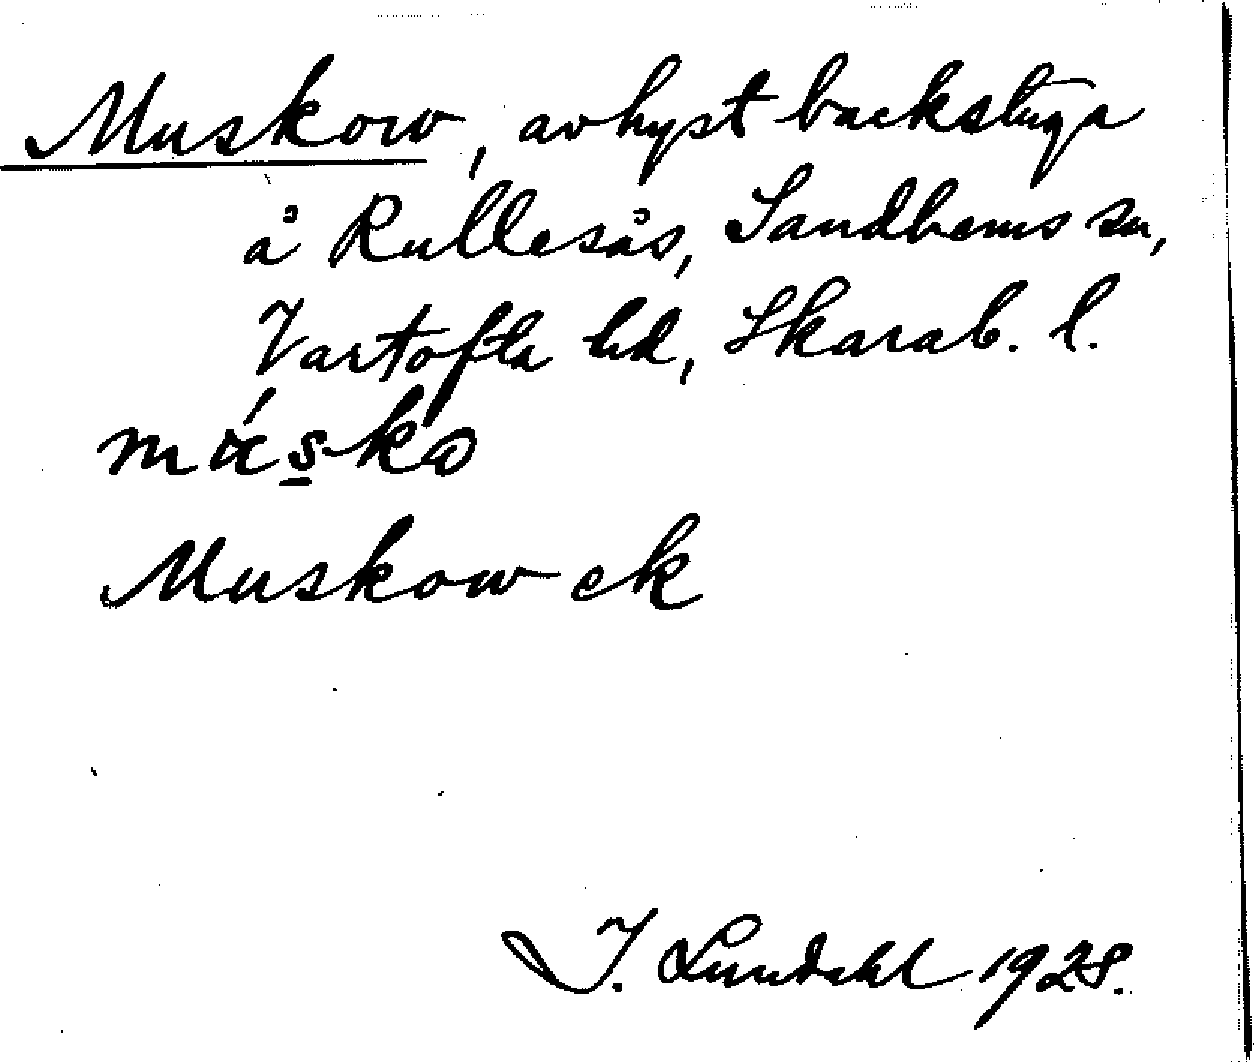 Muskow, avhyst backstuga
å Rullesås, Sandhems sn,
Vartofta hd, Skarab. l.
Muskow ek
I. Lundahl 1928.